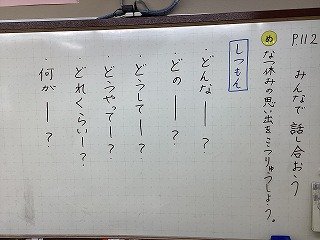 P.112
みんなで話し合おう
め なつ休みの思い出をこうりゅうしよう。
しつもん
・どんな―？
・どの―？
・どうして―？
・どうやって―？
・どれくらい―？
・何が―？